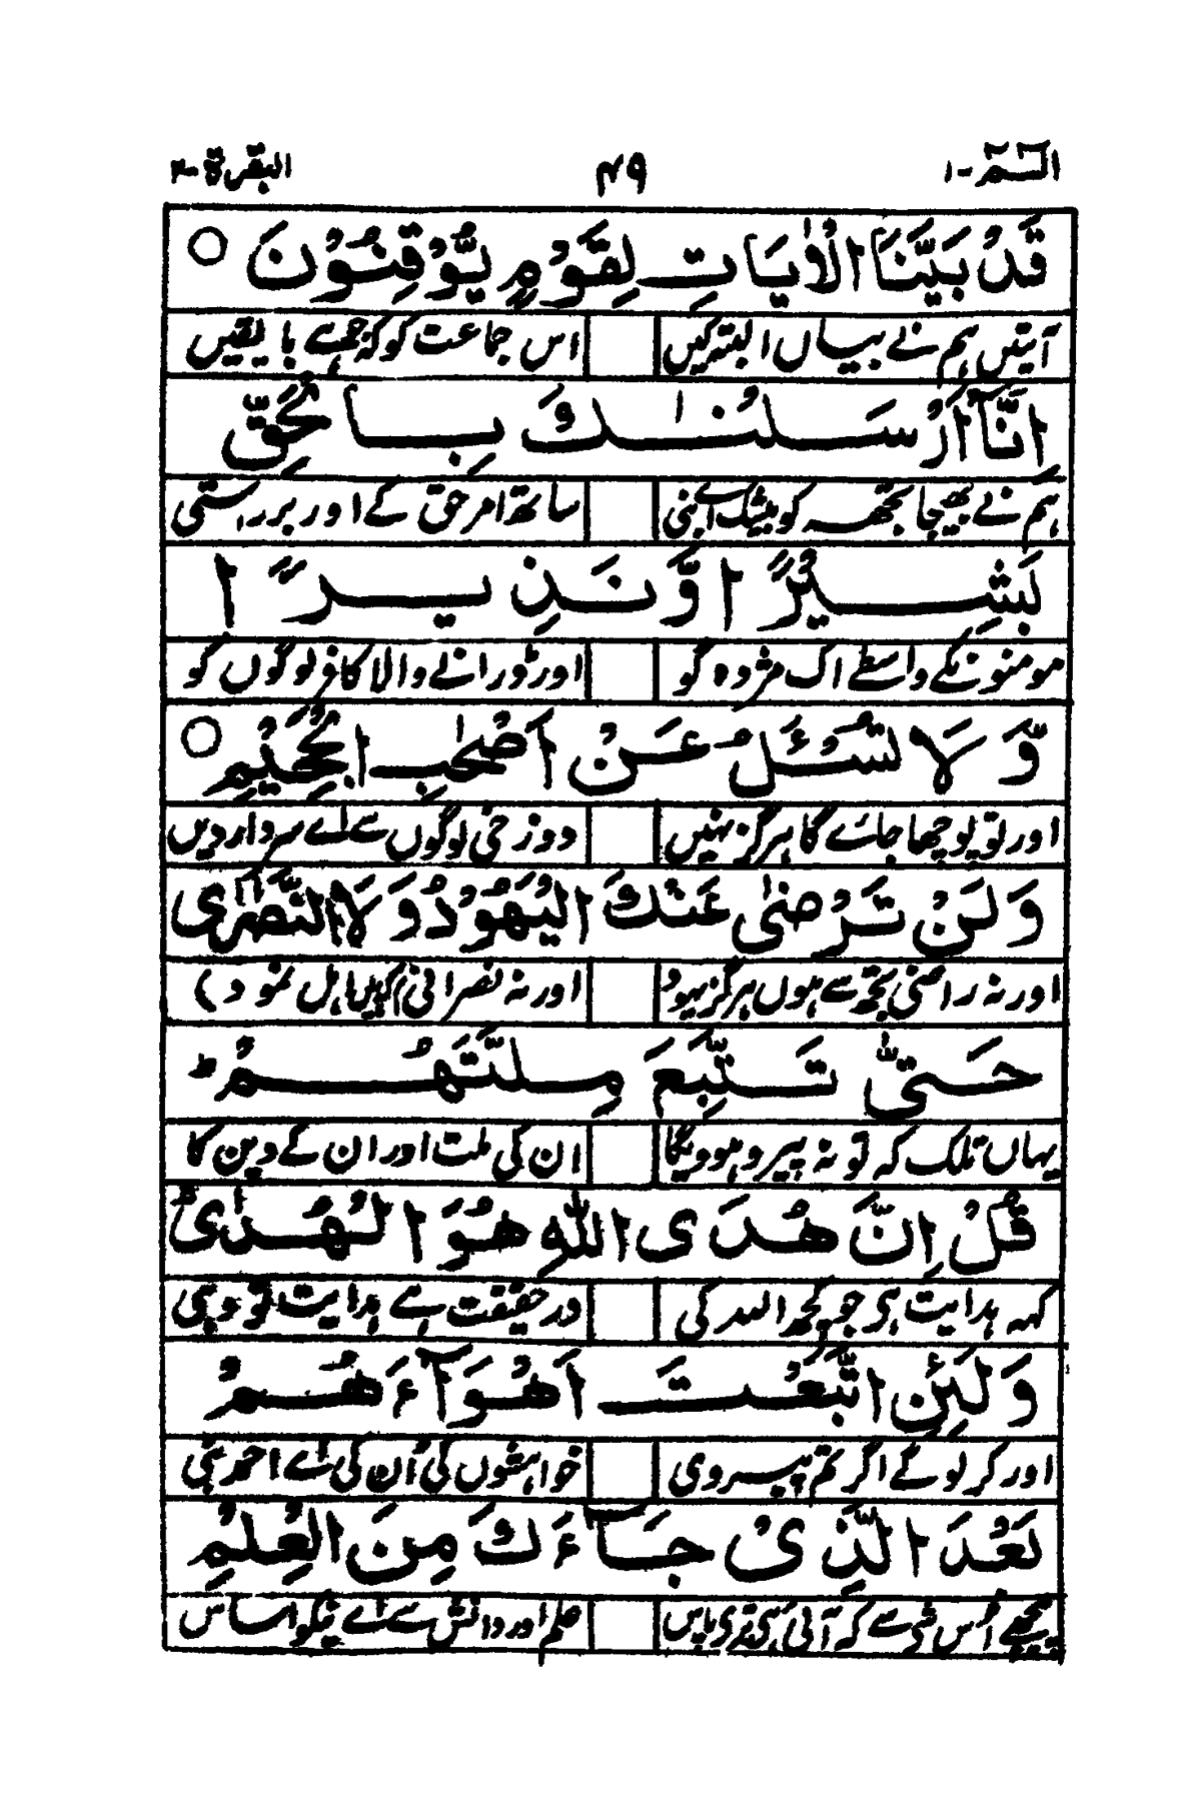 الٓمّٓ - ۱ ۴۹ البقرة - ۲
قَدْ بَيَّنَّا الْاٰيَاتِ لِقَوْمٍ يُّوْقِنُوْنَ ○
آیتیں ہم نے بیاں البتہ کیں اس جماعت کو کہ جو ہے با یقیں
اِنَّآ اَرْسَلْنٰكَ بِالْحَقِّ
ہم نے بھیجا تجھ کو بیشک اے نبی ساتھ امر حق کے اور بر راستی
بَشِيْرًا وَّنَذِيْرًا
مومنوں کے واسطے اک مژدہ گو اور ڈرانے والا کافر لوگوں کو
وَّلَا تُسْئَلُ عَنْ اَصْحٰبِ الْجَحِيْمِ ○
اور تو پوچھا جائے گا ہرگز نہیں دوزخی لوگوں سے اے سردار دیں
وَلَنْ تَرْضٰى عَنْكَ الْيَهُوْدُ وَلَا النَّصٰرٰى
اور نہ راضی تجھ سے ہوں ہرگز یہود اور نہ نصرانی (کہیں اہل نمود)
حَتّٰى تَتَّبِعَ مِلَّتَهُمْ ط
یہاں تلک کہ تو نہ پیرو ہوویگا ان کی ملت اور ان کے دین کا
قُلْ اِنَّ هُدَى اللّٰهِ هُوَ الْهُدٰى ط
کہہ ہدایت ہی جو کچھ اللہ کی در حقیقت ہے ہدایت تو وہی
وَلَئِنِ اتَّبَعْتَ اَهْوَآءَهُمْ
اور کر لو گے اگر تم پیروی خواہشوں کی اُن کی اے احمد نبی
بَعْدَ الَّذِىْ جَآءَكَ مِنَ الْعِلْمِ
پیچھے اُس شی سے کہ آئی ہی تری پاس علم اور دانش سے اے نیکو اساس